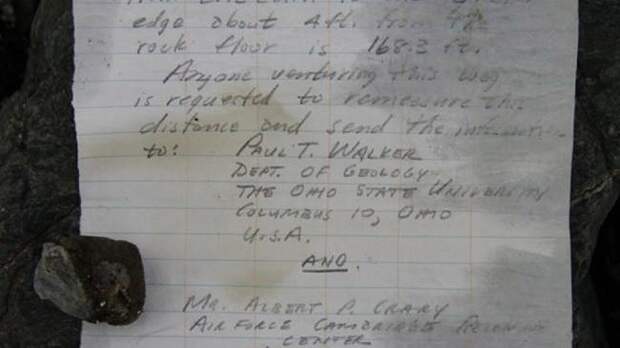 edge about 4 ft. from the
rock floor is 168.3 ft.
Anyone venturing this way
is requested to remeasure this
distance and send the information
to: PAUL T. WALKER
DEPT. OF GEOLOGY
THE OHIO STATE UNIVERSITY
COLUMBUS 10, OHIO
U.S.A.
AND
MR. ALBERT P. CRARY
AIR FORCE CAMBRIDGE RESEARCH
CENTER